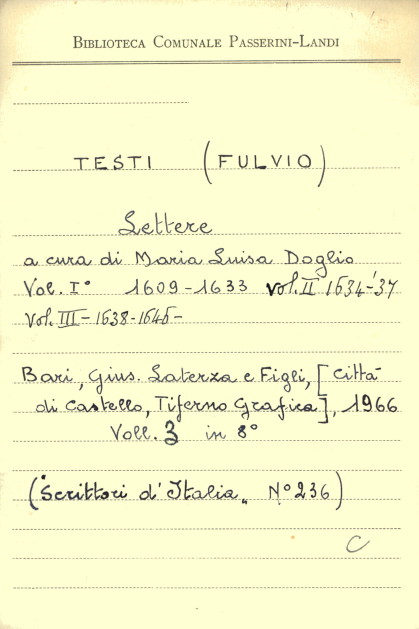 BIBLIOTECA COMUNALE PASSERINI-LANDI
TESTI (FULVIO)
Lettere
a cura di Maria Luisa Doglio
Vol. I° 1609-1633 vol. II 1634-'37
Vol. III - 1638-1646-
Bari, Gius. Laterza e Figli, [Città
di Castello, Tiferno Grafica], 1966
Voll. 3 in 8°
("Scrittori d'Italia„ N° 236)
C